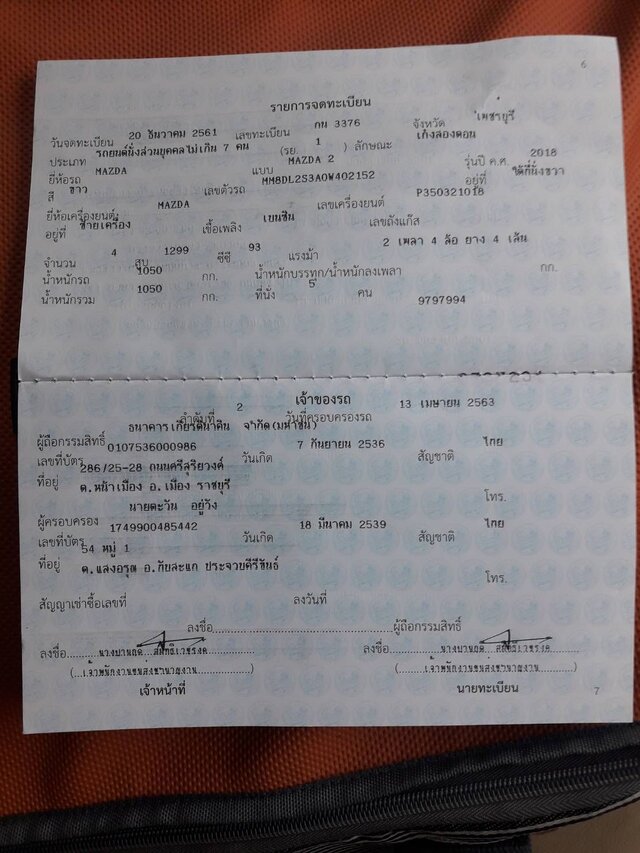 6
รายการจดทะเบียน
วันจดทะเบียน 20 ธันวาคม 2561 เลขทะเบียน กน 3376 จังหวัด เพชรบุรี
ประเภท รถยนต์นั่งส่วนบุคคลไม่เกิน 7 คน (รย. 1 ) ลักษณะ เก๋งสองตอน
ยี่ห้อรถ MAZDA แบบ MAZDA 2 รุ่นปี ค.ศ. 2018
สี ขาว เลขตัวรถ MM8DL2S3A0W402152 อยู่ที่ ใต้ที่นั่งขวา
ยี่ห้อเครื่องยนต์ MAZDA เลขเครื่องยนต์ P350321018
อยู่ที่ ซ้ายเครื่อง เชื้อเพลิง เบนซิน เลขถังแก๊ส
จำนวน 4 สูบ 1299 ซีซี 93 แรงม้า 2 เพลา 4 ล้อ ยาง 4 เส้น
น้ำหนักรถ 1050 กก. น้ำหนักบรรทุก/น้ำหนักลงเพลา กก.
น้ำหนักรวม 1050 กก. ที่นั่ง 5 คน 9797994
เจ้าของรถ
ลำดับที่ 2 วันที่ครอบครองรถ 13 เมษายน 2563
ผู้ถือกรรมสิทธิ์ ธนาคารเกียรตินาคิน จำกัด(มหาชน)
เลขที่บัตร 0107536000986 วันเกิด 7 กันยายน 2536 สัญชาติ ไทย
ที่อยู่ 286/25-28 ถนนศรีสุริยวงศ์
ต.หน้าเมือง อ.เมือง ราชบุรี โทร.
ผู้ครอบครอง นายตะวัน อยู่วัง
เลขที่บัตร 1749900485442 วันเกิด 18 มีนาคม 2539 สัญชาติ ไทย
ที่อยู่ 54 หมู่ 1
ต.แสงอรุณ อ.ทับสะแก ประจวบคีรีขันธ์ โทร.
สัญญาเช่าซื้อเลขที่ ลงวันที่
ลงชื่อ ผู้ถือกรรมสิทธิ์
ลงชื่อ ลงชื่อ
(เจ้าพนักงานขนส่งชำนาญงาน) (เจ้าพนักงานขนส่งชำนาญงาน)
เจ้าหน้าที่ นายทะเบียน
7